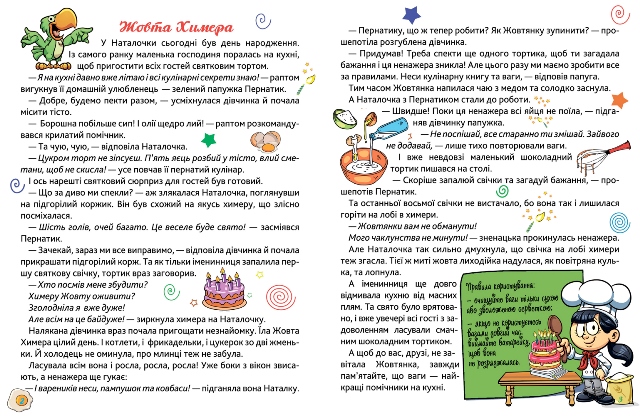 Жовта Химера
У Наталочки сьогодні був день народження.
Із самого ранку маленька господиня поралась на кухні,
щоб пригостити всіх гостей святковим тортом.
— Я на кухні давно вже літаю і всі кулінарні секрети знаю! — раптом
вигукнув її домашній улюбленець — зелений папужка Пернатик.
— Добре, будемо пекти разом, — усміхнулася дівчинка й почала
місити тісто.
— Борошна побільше сип! І олії щедро лий! — раптом розкоманду-
вався крилатий помічник.
— Та чую, чую, — відповіла Наталочка.
— Цукром торт не зіпсуєш. П'ять яєць розбий у тісто, влий сме-
тани, щоб не скисла! — усе повчав її пернатий кулінар.
І ось нарешті святковий сюрприз для гостей був готовий.
— Що за диво ми спекли? — аж злякалася Наталочка, поглянувши
на підгорілий коржик. Він був схожий на якусь химеру, що злісно
посміхалася.
— Шість голів, очей багато. Це веселе буде свято! — засміявся
Пернатик.
— Зачекай, зараз ми все виправимо, — відповіла дівчинка й почала
прикрашати підгорілий корж. Та як тільки іменинниця запалила пер-
шу святкову свічку, тортик враз заговорив.
— Хто посмів мене збудити?
Химеру Жовту оживити?
Зголодніла я вже дуже!
Але всім на це байдуже! — зиркнула химера на Наталочку.
Налякана дівчинка враз почала пригощати незнайомку. Їла Жовта
Химера цілий день. І котлети, і фрикадельки, і цукерок зо дві жмень-
ки. Й холодець не оминула, про млинці теж не забула.
Ласувала всім вона і росла, росла, росла! Уже боки з вікон звиса-
ють, а ненажера ще гукає:
— І вареників неси, пампушок та ковбаси! — підганяла вона Наталку.
— Пернатику, що ж тепер робити? Як Жовтянку зупинити? — про-
шепотіла розгублена дівчинка.
— Придумав! Треба спекти ще одного тортика, щоб ти загадала
бажання і ця ненажера зникла! Але цього разу ми маємо зробити все
за правилами. Неси кулінарну книгу та ваги, — відповів папуга.
Тим часом Жовтянка напилася чаю з медом та солодко заснула.
А Наталочка з Пернатиком стали до роботи.
— Швидше! Поки ця ненажера всі яйця не поїла, — підга-
няв дівчинку папужка.
— Не поспішай, все старанно ти змішай. Зайвого
не додавай, — лише тихо повторювали ваги.
І вже невдовзі маленький шоколадний
тортик пишався на столі.
— Скоріше запалюй свічки та загадуй бажання, — про-
шепотів Пернатик.
Та останньої восьмої свічки не вистачало, бо вона так і лишилася
горіти на лобі в химери.
— Жовтянки вам не обманути!
Мого чаклунства не минути! — зненацька прокинулась ненажера.
Але Наталочка так сильно дмухнула, що свічка на лобі химери
теж згасла. Тієї ж миті жовта лиходійка надулася, як повітряна куль-
ка, та лопнула.
А іменинниця ще довго
відмивала кухню від масних
плям. Та свято було врятова-
но, і вже увечері всі гості з за-
доволенням ласували смач-
ним шоколадним тортиком.
А щоб до вас, друзі, не за-
вітала Жовтянка, завжди
пам'ятайте, що ваги — най-
кращі помічники на кухні.
Правила користування:
- очищуйте ваги тільки сухою
або зволоженою серветкою;